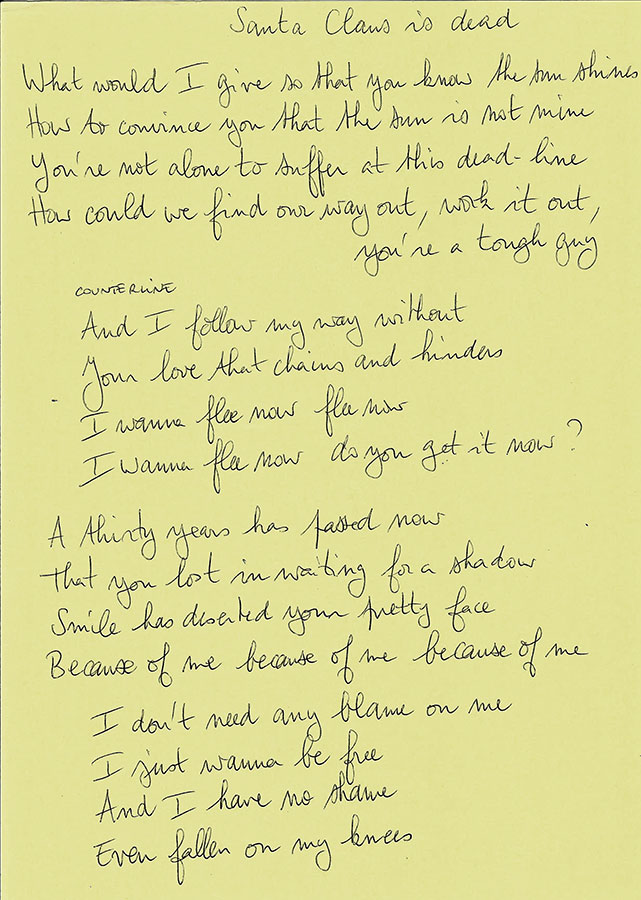 Santa Claus is dead
What would I give so that you know the sun shines
How to convince you that the sun is not mine
You're not alone to suffer at this dead-line
How could we find our way out, work it out,
you're a tough guy
COUNTERLINE
And I follow my way without
Your love that chains and hinders
I wanna flee now flee now
I wanna flee now do you get it now?
A thirty years has passed now
That you lost in waiting for a shadow
Smile has deserted your pretty face
Because of me because of me because of me
I don't need any blame on me
I just wanna be free
And I have no shame
Even fallen on my knees